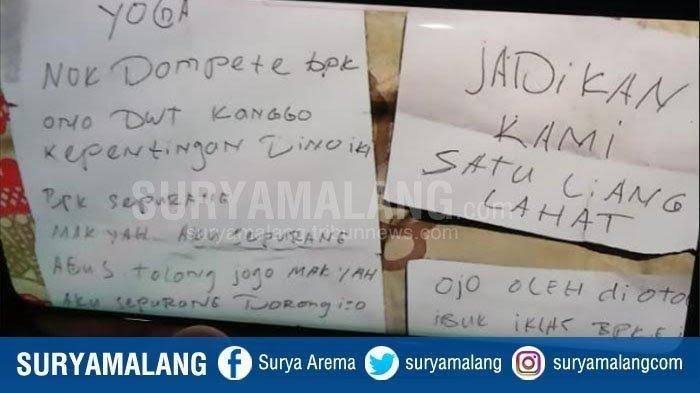 YOGA
NOK Dompete bpk
ONO DWT KANGGO
KEPENTINGAN DINO iki
BPK SEPURANE
MAK YAH AKU SEPURANE
AGUS tolong jogo MAK YAH
AKU SEPURANE DORONG iso
JADIKAN
KAMI
SATU LIANG
LAHAT
OJO OLEH di oto
IBUK IKLAS BPK
SURYAMALANG.com
suryamalang.tribunnews.com
SURYAMALANG Surya Arema suryamalang suryamalangcom